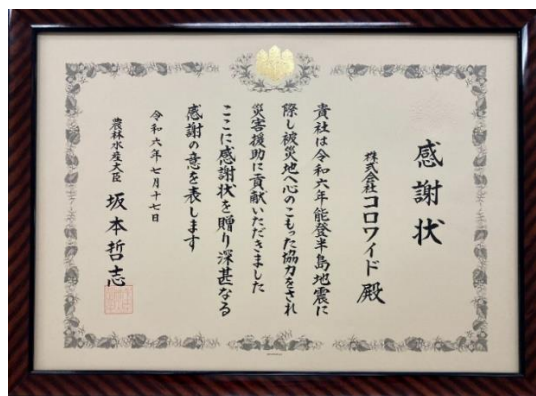 感謝状
株式会社コロワイド 殿
貴社は令和六年能登半島地震に
際し被災地へ心のこもった協力をされ
災害援助に貢献いただきました
ここに感謝状を贈り深甚なる
感謝の意を表します
令和六年七月十七日
農林水産大臣 坂本哲志